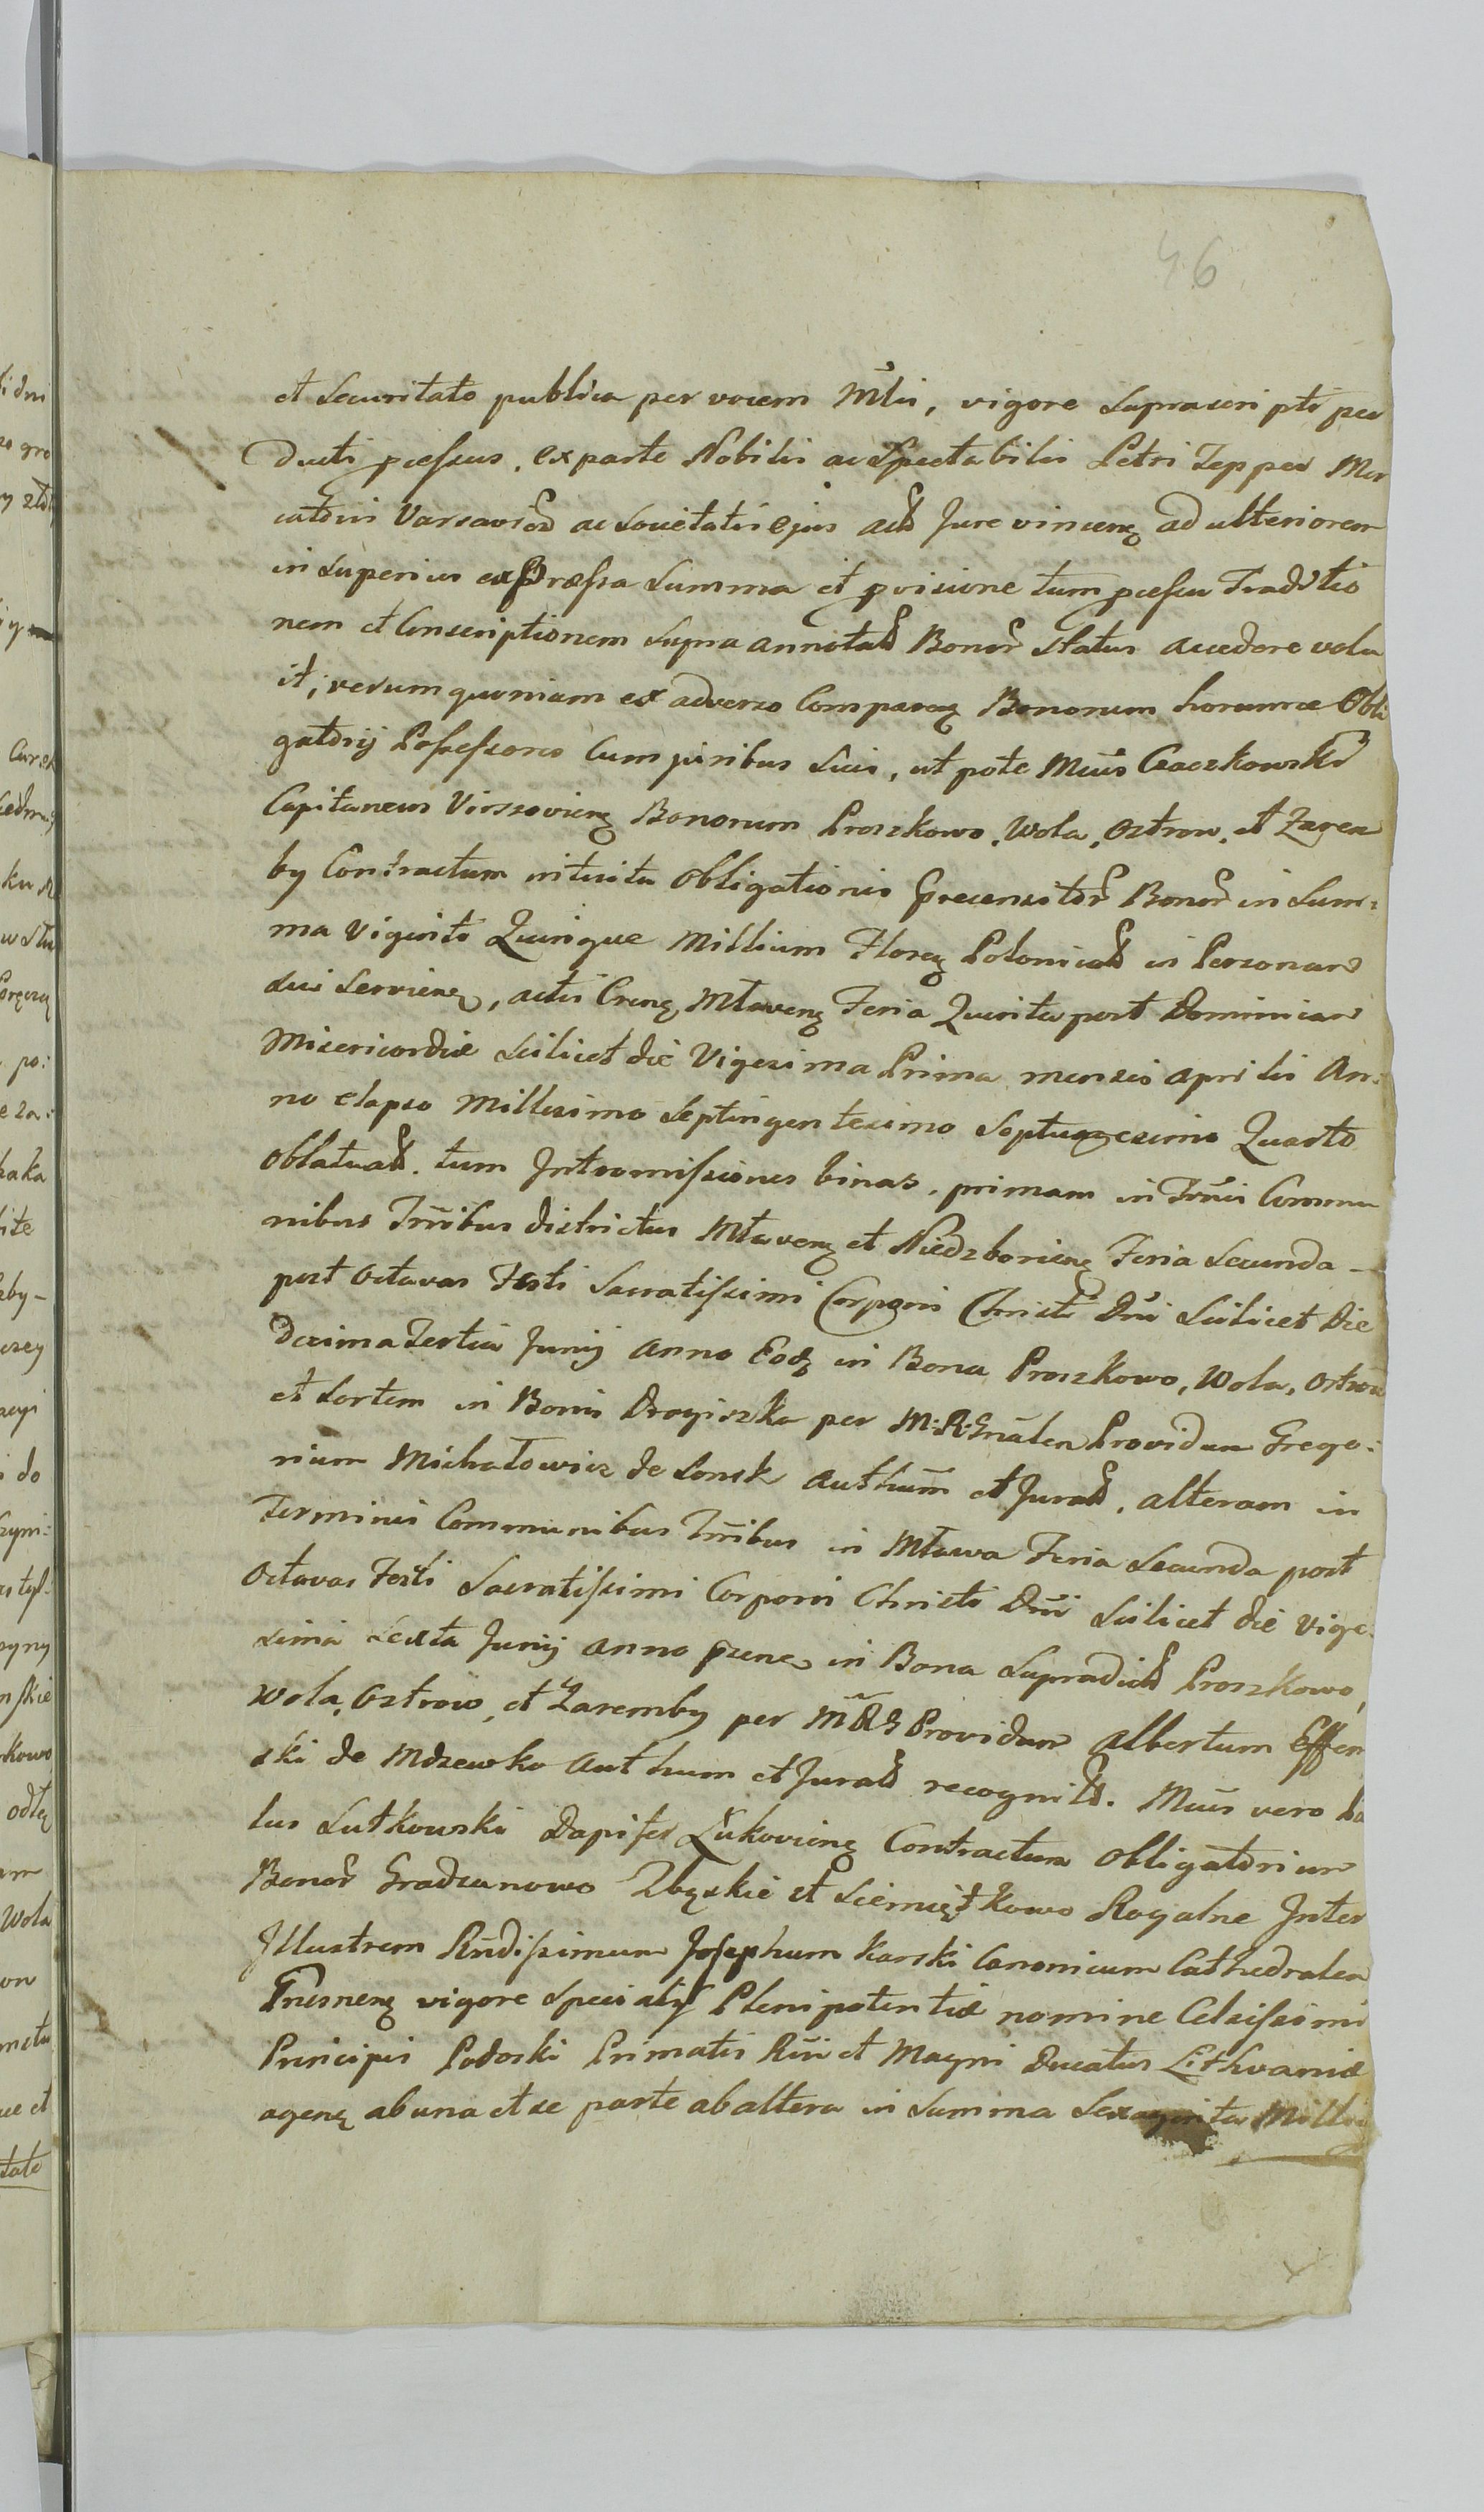 46
et Securitate publica per vocem Mtlis, vigore Suprascripti per
ducti pcessus, ex parte Nobilis ac Spectabilis Petri Tepper Mer
catoris Varsavien ac Societatis ejus act Jure vincen ad ulteriorem
in Superius expræssa Summa et pvisione tum pcessu Traditio
nem et Conscriptionem Supra annotat Bonor Status accedere volu
it, verum quoniam ex adverso Comparen Bonorum horumce Obli
gatorij Possessores Cum juribus Suis, ut pote Mcus Craczkowski
Capitaneus Virssovien Bonorum Proszkowo, Wola, Ostrow, et Zarem
by Contractum intuitu Obligationis precensitor Bonor in Sum:
ma Viginti Quinque Millium Floren Polonical in Personam
Sui Servien, actis Cren Mlaven Feria Quinta post Dominicam
Misericordiæ Scilicet die Vigesima Prima mensis Aprilis An:
no elapso Millesimo Septingentesimo Septuagesimo Quarto
Oblatuat. tum Intromissiones binas, primam in Trnis Commu
nibus Trribus districtus Mlaven et Niedzborien Feria Secunda –
post Octavas Festi Sacratissimi Corporis Christi Dni Scilicet Die
Decima Tertia Junij Anno Eod in Bona Proszkowo, Wola, Ostrow
et Sortem in Bonis Drogiszka per M:R:Gnalem Providum Grego:
rium Michałowicz de Konsk Authum et Jurat, alteram in
Terminis Communibus Trribus in Mława Feria Secunda post
Octavas Festi Sacratissimi Corporis Christi Dni Scilicet die Vige:
sima Sexta Junij anno præsen in Bona Supradict Proszkowo,
Wola, Ostrow, et Zaremby per M R G Providum Albertum Effen
ski de Mdzewko Authum et Jurat recognit. Mcus vero Pa
lus Lutkowski Dapifer Łukovien Contractum Obligatorium
Bonor Gradzanowo Zbęskie et Siemiętkowo Rogalne Inter
Illustrem Rndissimum Josephum Karski Canonicum Cathedralem
Gnesnen vigore Specialis Plenipotentiæ nomine Celsissimi
Principis Podoski Primatis Rni et Magni Ducatus Lithvaniæ
agen ab una et se parte ab altera in Summa Sexaginta Milli